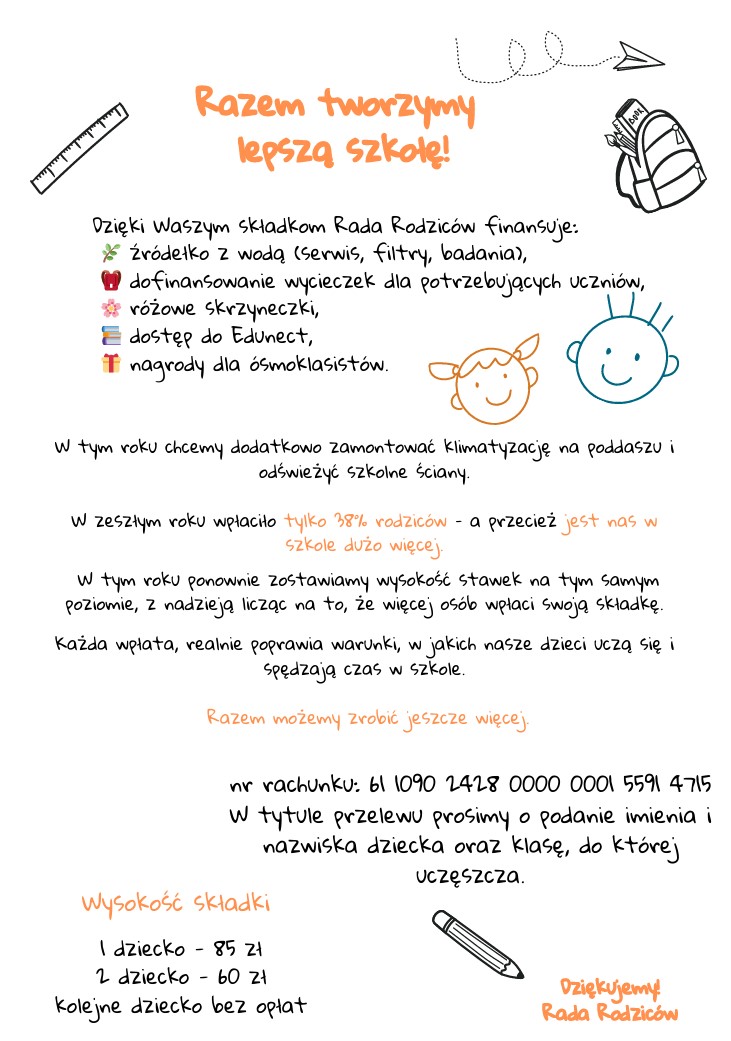 Razem tworzymy
lepszą szkołę!
BOOK
Dzięki Waszym składkom Rada Rodziców finansuje:
🌿 źródełko z wodą (serwis, filtry, badania),
🎒 dofinansowanie wycieczek dla potrzebujących uczniów,
🌸 różowe skrzyneczki,
📚 dostęp do Edunect,
🎁 nagrody dla ósmoklasistów.
W tym roku chcemy dodatkowo zamontować klimatyzację na poddaszu i
odświeżyć szkolne ściany.
W zeszłym roku wpłaciło tylko 38% rodziców - a przecież jest nas w
szkole dużo więcej.
W tym roku ponownie zostawiamy wysokość stawek na tym samym
poziomie, z nadzieją licząc na to, że więcej osób wpłaci swoją składkę.
Każda wpłata, realnie poprawia warunki, w jakich nasze dzieci uczą się i
spędzają czas w szkole.
Razem możemy zrobić jeszcze więcej.
nr rachunku: 61 1090 2428 0000 0001 5591 4715
W tytule przelewu prosimy o podanie imienia i
nazwiska dziecka oraz klasę, do której
uczęszcza.
Wysokość składki
1 dziecko - 85 zł
2 dziecko - 60 zł
kolejne dziecko bez opłat
Dziękujemy!
Rada Rodziców